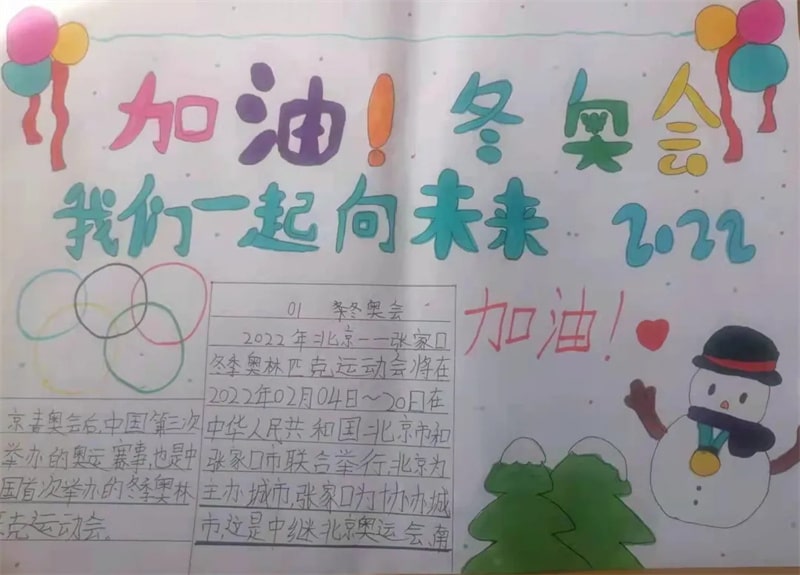 加油！冬奥会
我们一起向未来 2022
加油！
01 冬奥会
2022年北京——张家口
冬季奥林匹克运动会将在
2022年02月04日～20日在
中华人民共和国北京市和
张家口市联合举行,北京为
主办城市,张家口为协办城
市,这是中继北京奥运会,南
京青奥会后,中国第三次
举办的奥运赛事,也是中
国首次举办的冬季奥林
匹克运动会.